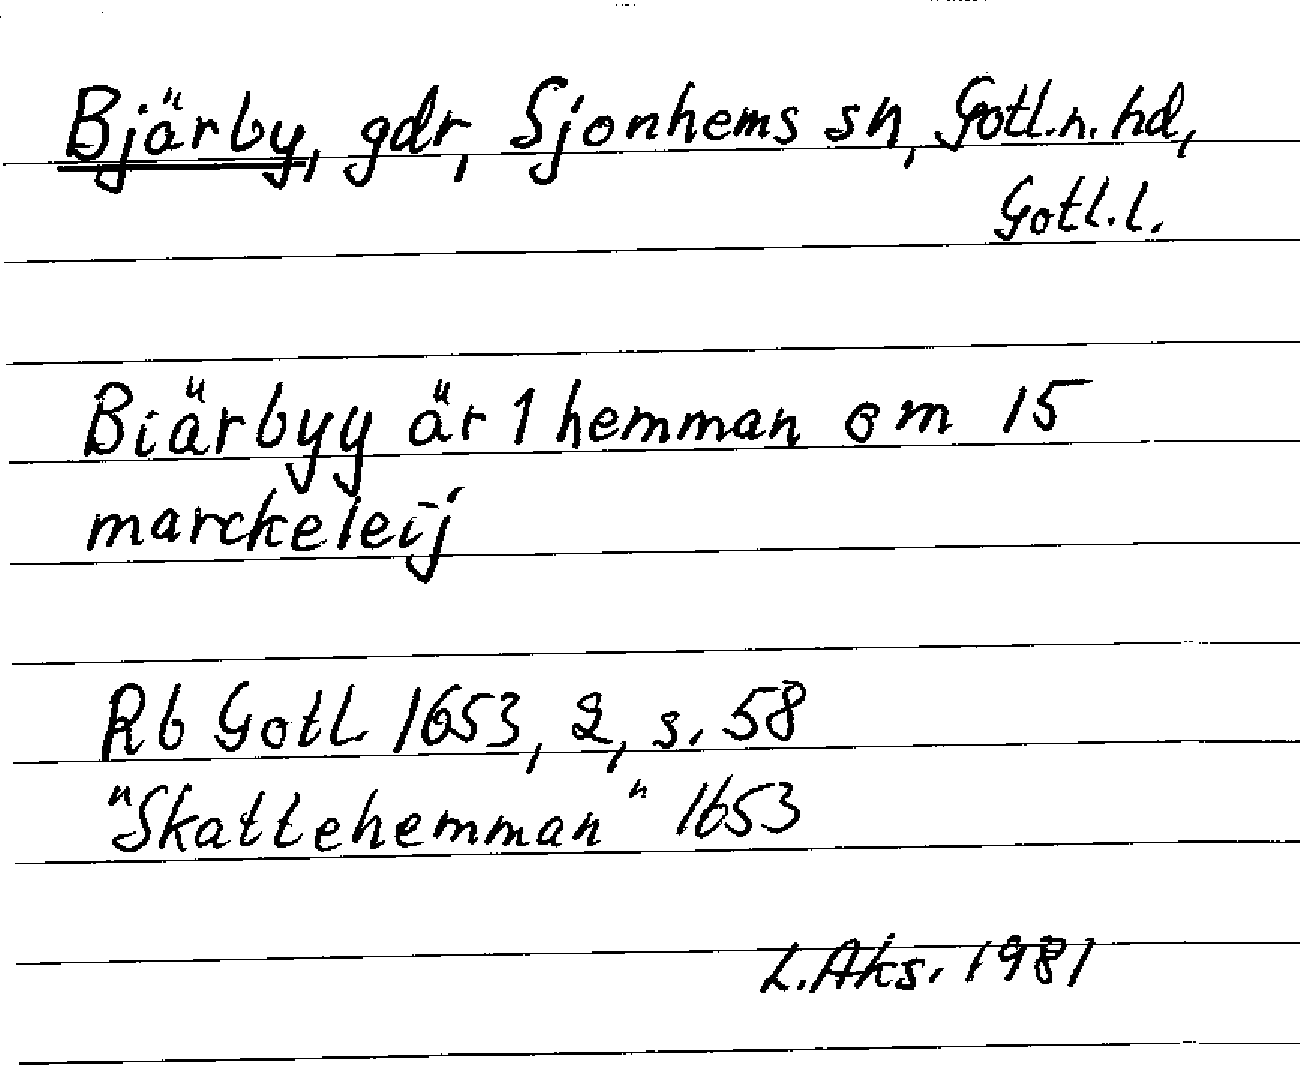 Bjärby, gdr, Sjonhems sn, Gotl.n.hd,
Gotl.l.
Biärbyy är 1 hemman om 15
marckeleij
Rb Gotl 1653, 2, s. 58
"Skattehemman" 1653
L.Aks. 1981